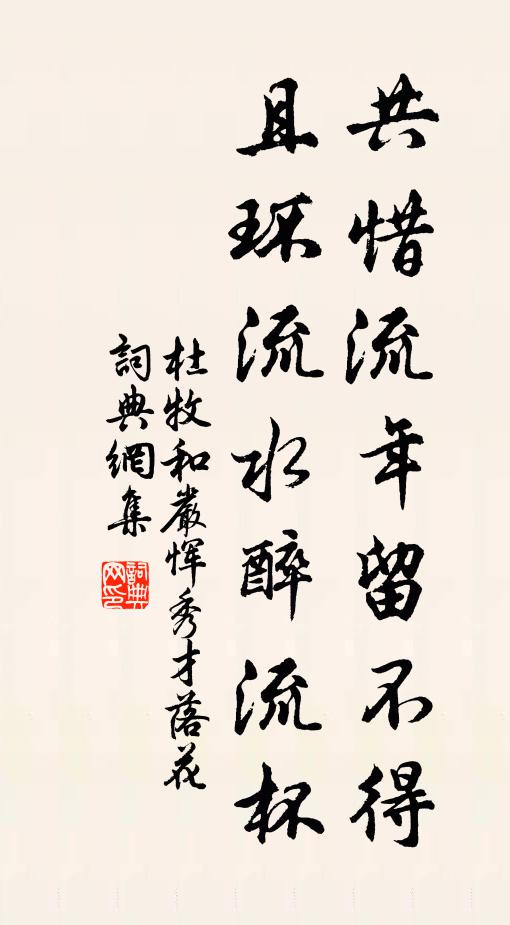 共惜流年留不得
且环流水醉流杯
杜牧和嚴惲秀才落花
詞典網集
詞典网印